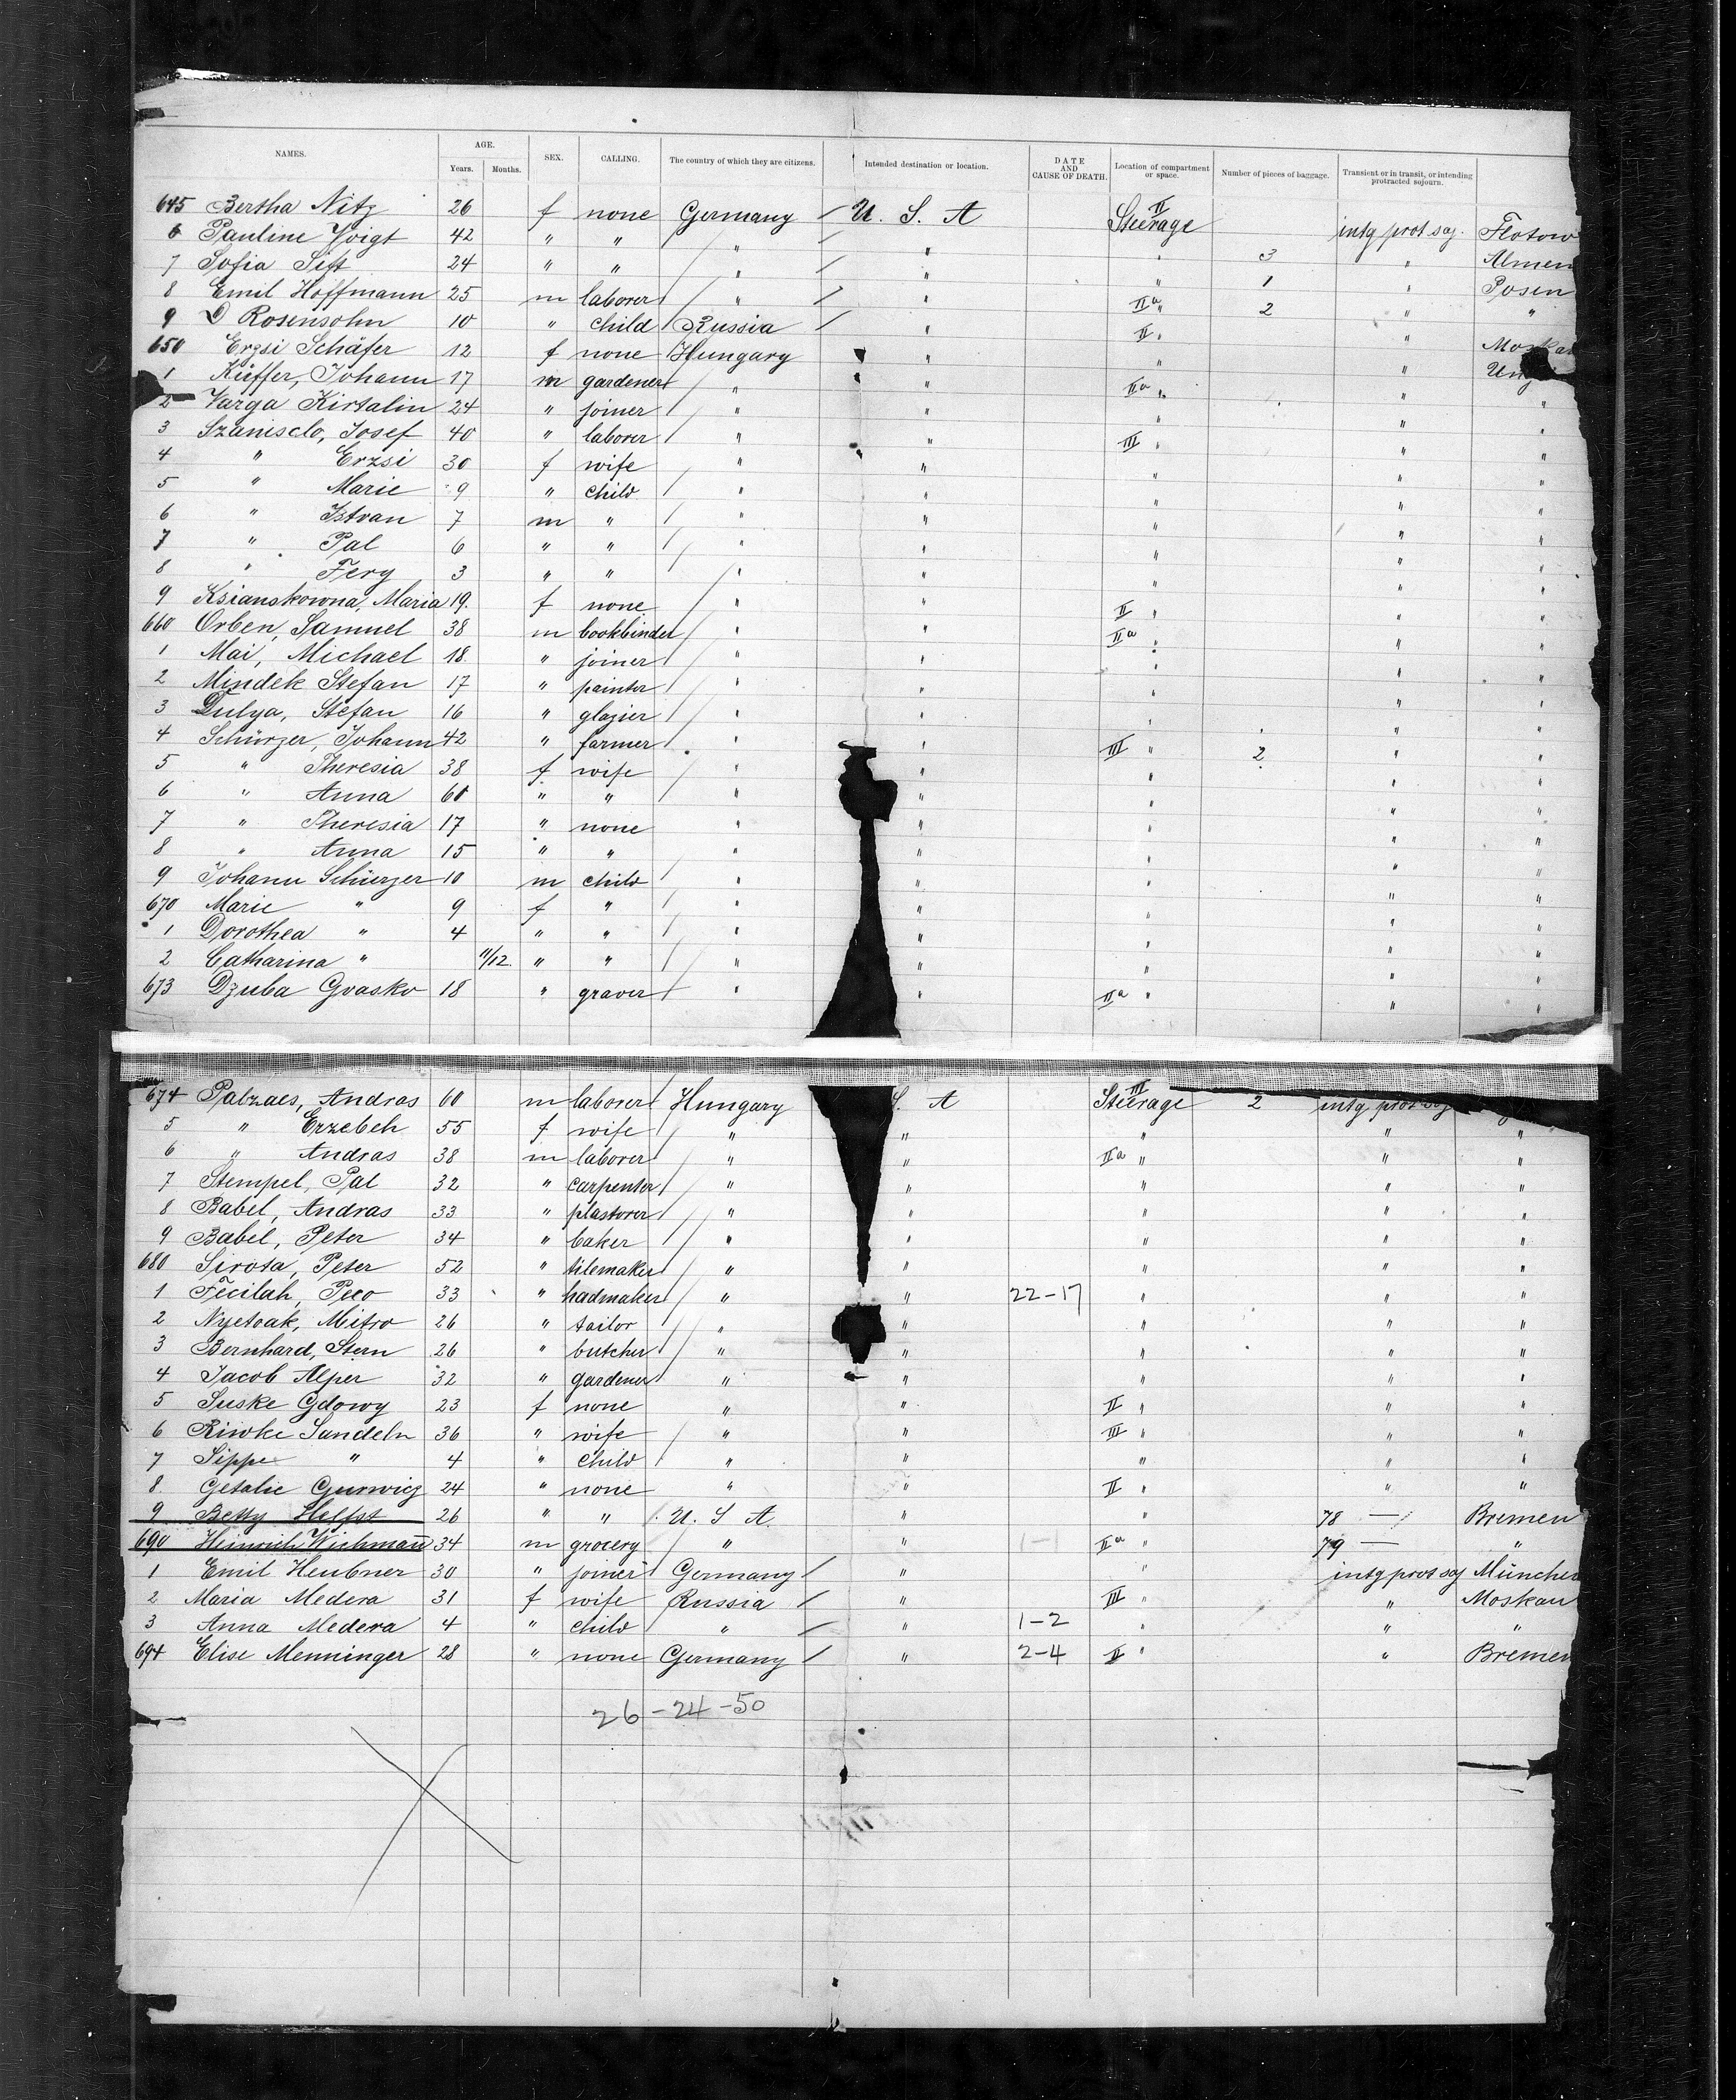 NAMES. AGE. Years. Months. SEX. CALLING. The country of which they are citizens. Intended destination or location. DATE AND CAUSE OF DEATH. Location of compartment or space. Number of pieces of baggage. Transient or in transit, or intending protracted sojourn.
645 Bertha Nitz 26 f none Germany / U. S. A II Steerage intg prot soj. Flotow
6 Pauline Voigt 42 " " " / " " 3 " Almen
7 Sofia Sitt 24 " " " / " " 1 " Posen
8 Emil Hoffmann 25 m laborer " / " IIa " 2 " "
9 D Rosensohn 10 " child Russia / " II " " Moskau
650 Erzsi Schäfer 12 f none Hungary " " "
1 Küffer, Johann 17 m gardener " " IIa " " "
2 Varga Kirtalin 24 " joiner " " " " "
3 Szanisclo, Josef 40 " laborer " " III " " "
4 " Erzsi 30 f wife " " " " "
5 " Marie 9 " child " " " " "
6 " Istvan 7 m " " " " " "
7 " Pal 6 " " " " " " "
8 " Fery 3 " " " " " " "
9 Ksianskowna, Maria 19. f none " " II " " "
660 Orben, Samuel 38 m bookbinder " " IIa " " "
1 Mai, Michael 18. " joiner " " " " "
2 Mindek Stefan 17 " painter " " " " "
3 Dulya, Stefan 16 " glazier " " " " "
4 Schürzer, Johann 42 " farmer " " III " 2 " "
5 " Theresia 38 f wife " " " " "
6 " Anna 60 " " " " " " "
7 " Theresia 17 " none " " " " "
8 " Anna 15 " " " " " " "
9 Johann Schürzer 10 m child " " " " "
670 Marie " 9 f " " " " " "
1 Dorothea " 4 " " " " " " "
2 Catharina " 11/12. " " " " " " "
673 Dzuba Gvasko 18 " graver " " IIa " " "
674 Palzaes, Andras 60 m laborer Hungary S. A III Steerage 2 intg prot soj
5 " Erzebeh 55 f wife " " " " "
6 " Andras 38 m laborer " " IIa " " "
7 Stempel, Pal 32 " carpenter " " " " "
8 Babel, Andras 33 " plasterer " " " " "
9 Babel, Peter 34 " baker " " " " "
680 Sirota, Peter 52 " tilemaker " " " " "
1 Fecilah, Peeo 33 " hadmaker " " 22-17 " " "
2 Nyetoak, Mitro 26 " tailor " " " " "
3 Bernhard, Stern 26 " butcher " " " " "
4 Jacob Alper 32 " gardener " " " " "
5 Suske Gdowy 23 f none " " II " " "
6 Riwke Sandeln 36 " wife " " III " " "
7 Sippe " 4 " child " " " " "
8. Getalie Gurwicz 24 " none " " II " " "
9 Betty Helfst 26 " " U. S A. " " 78 — Bremen
690 Heinrich Wichmann 34 m grocery " " 1-1 IIa " 79 — "
1 Emil Heubner 30 " joiner Germany / " " intg prot soj München
2 Maria Medera 31 f wife Russia / " III " " Moskau
3 Anna Medera 4 " child " / " 1-2 " " "
694 Elise Menninger 28 " none Germany / " 2-4 II " " Bremen
26-24-50